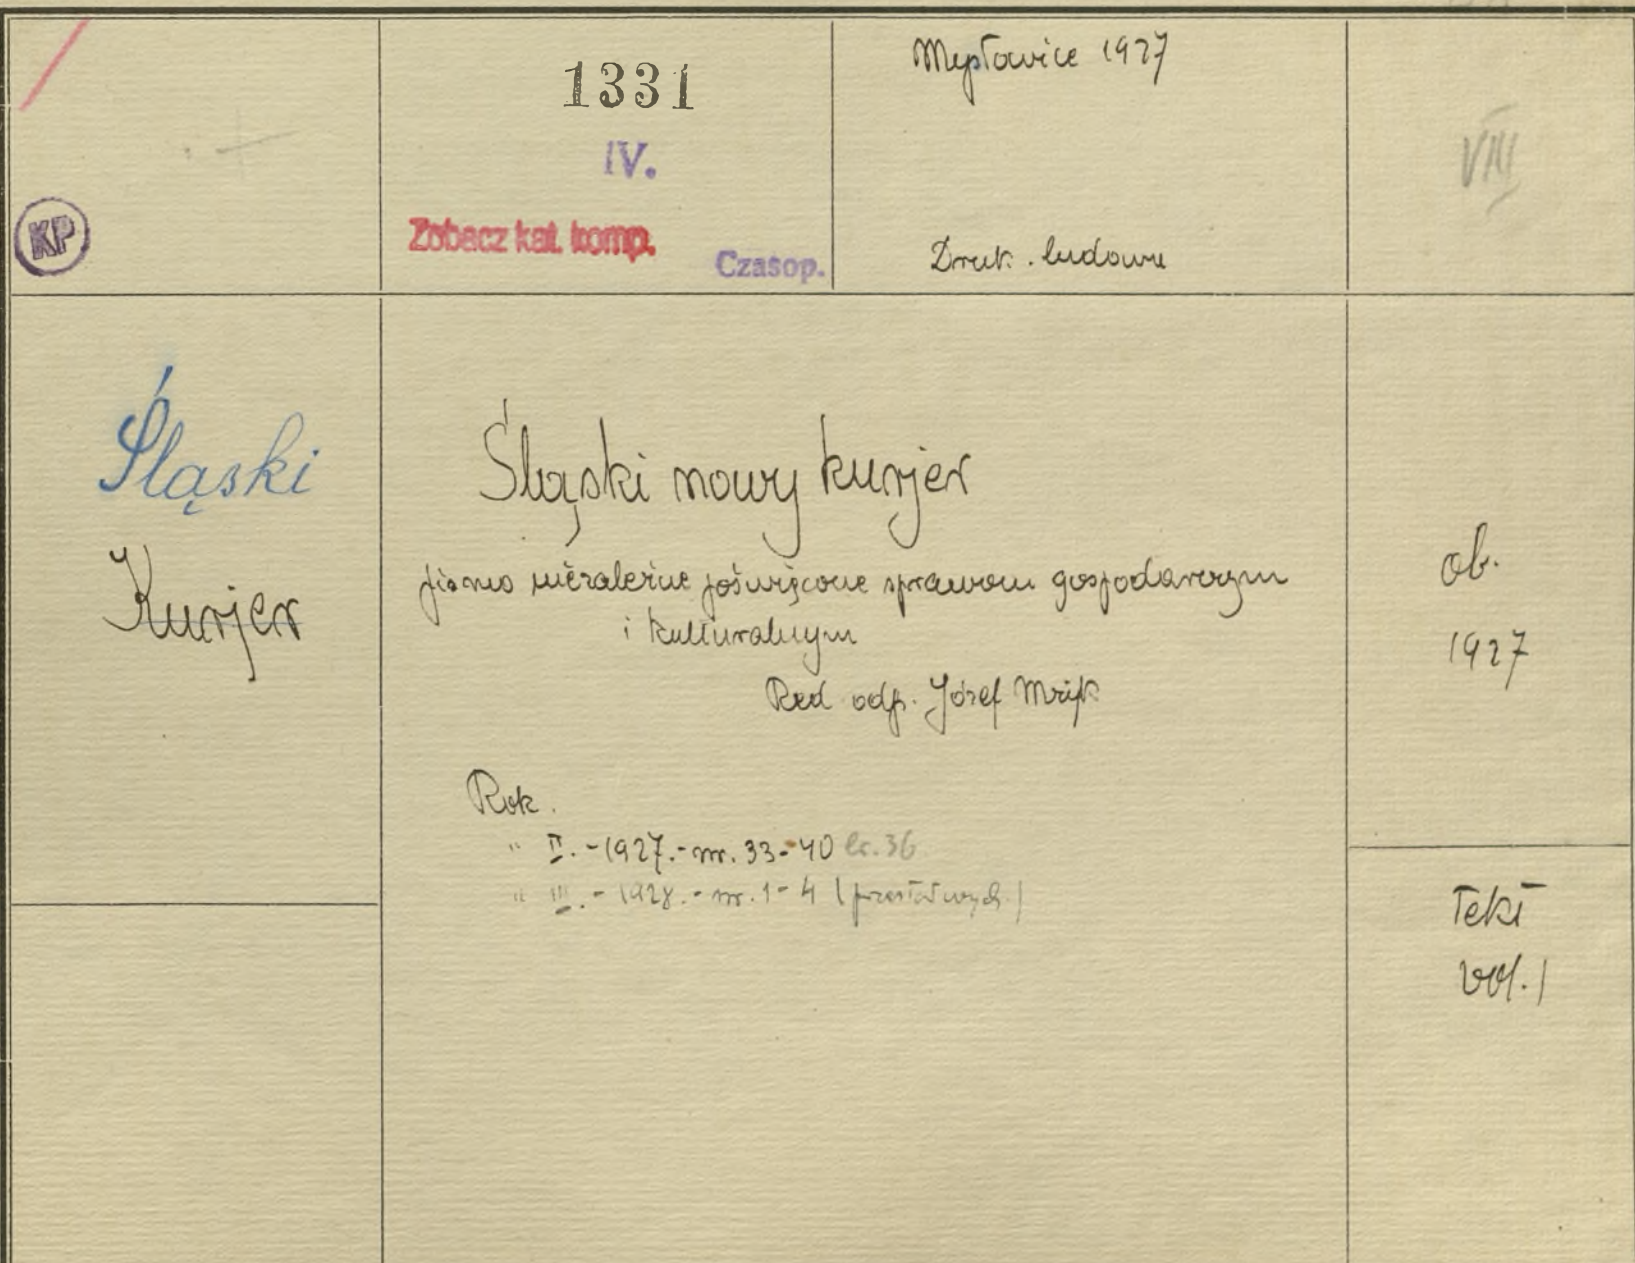 1331
IV.
Zobacz kat. komp.
Czasop.
KP
Mysłowice 1927
Druk. ludowe
VIII
Śląski
Kurjer
Śląski nowy kurjer
pismo niezależne poświęcone sprawom gospodarczym
i kulturalnym
Red odp. Józef
Rok.
" II. - 1927. - nr. 33-40 36
" III. - 1928. - nr. 1-4
ob.
1927
Tekt
vol. 1